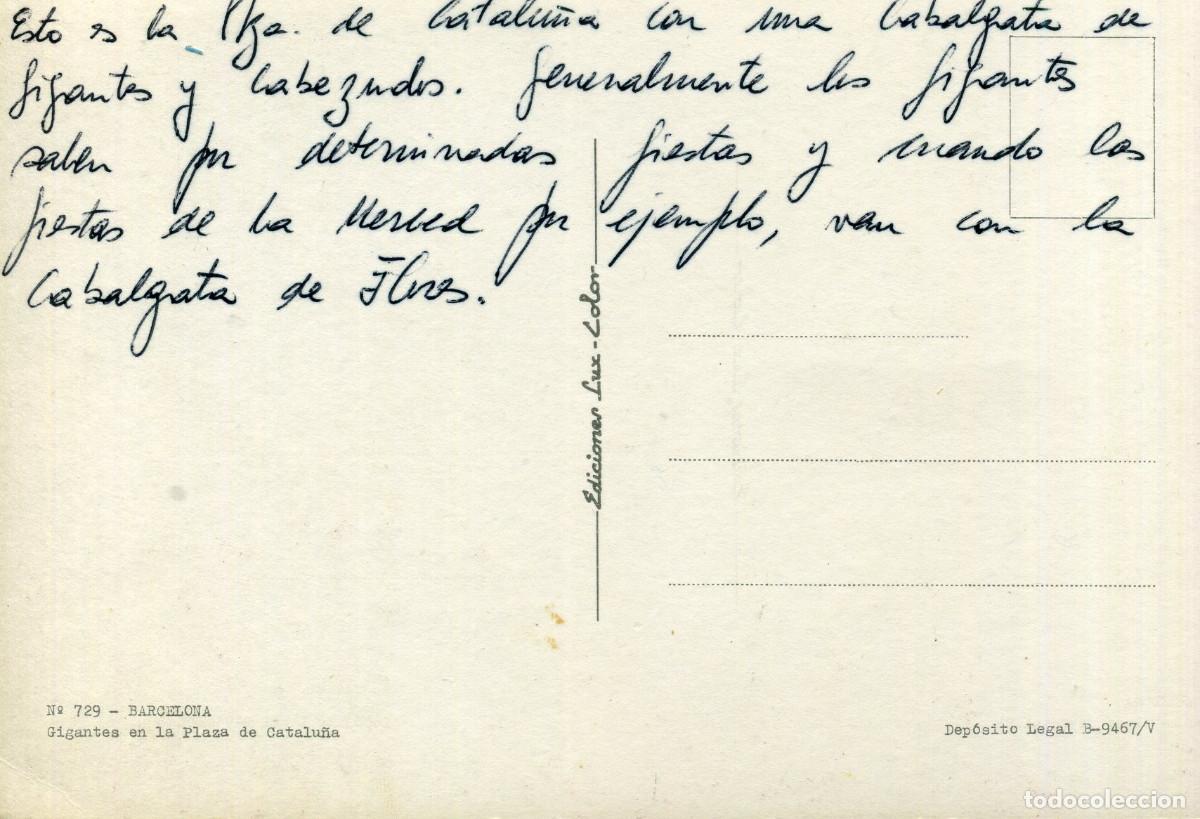 Esto es la Pza. de Cataluña con una Cabalgata de
gigantes y Cabezudos. Generalmente los gigantes
salen por determinadas fiestas y cuando las
fiestas de la Merced por ejemplo, van con la
Cabalgata de Flores.
Ediciones Lux-Color
Nº 729 - BARCELONA
Gigantes en la Plaza de Cataluña
Depósito Legal B-9467/V
todocoleccion